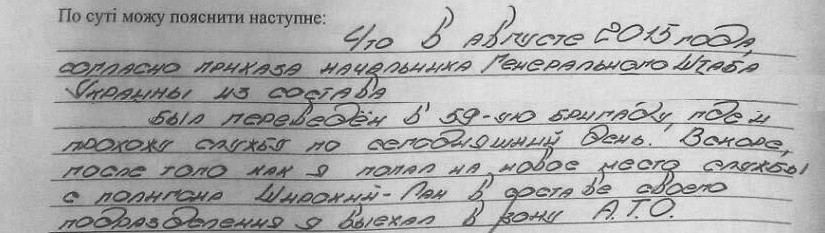 По суті можу пояснити наступне:
Что в августе 2015 года,
согласно приказа начальника Генерального Штаба
Украины из состава
был переведён в 59-ую бригаду, где и
прохожу службу по сегодняшний день. Вскоре,
после того как я попал на новое место службы
с полигона Широкий-Лан в составе своего
подразделения я выехал в зону А.Т.О.